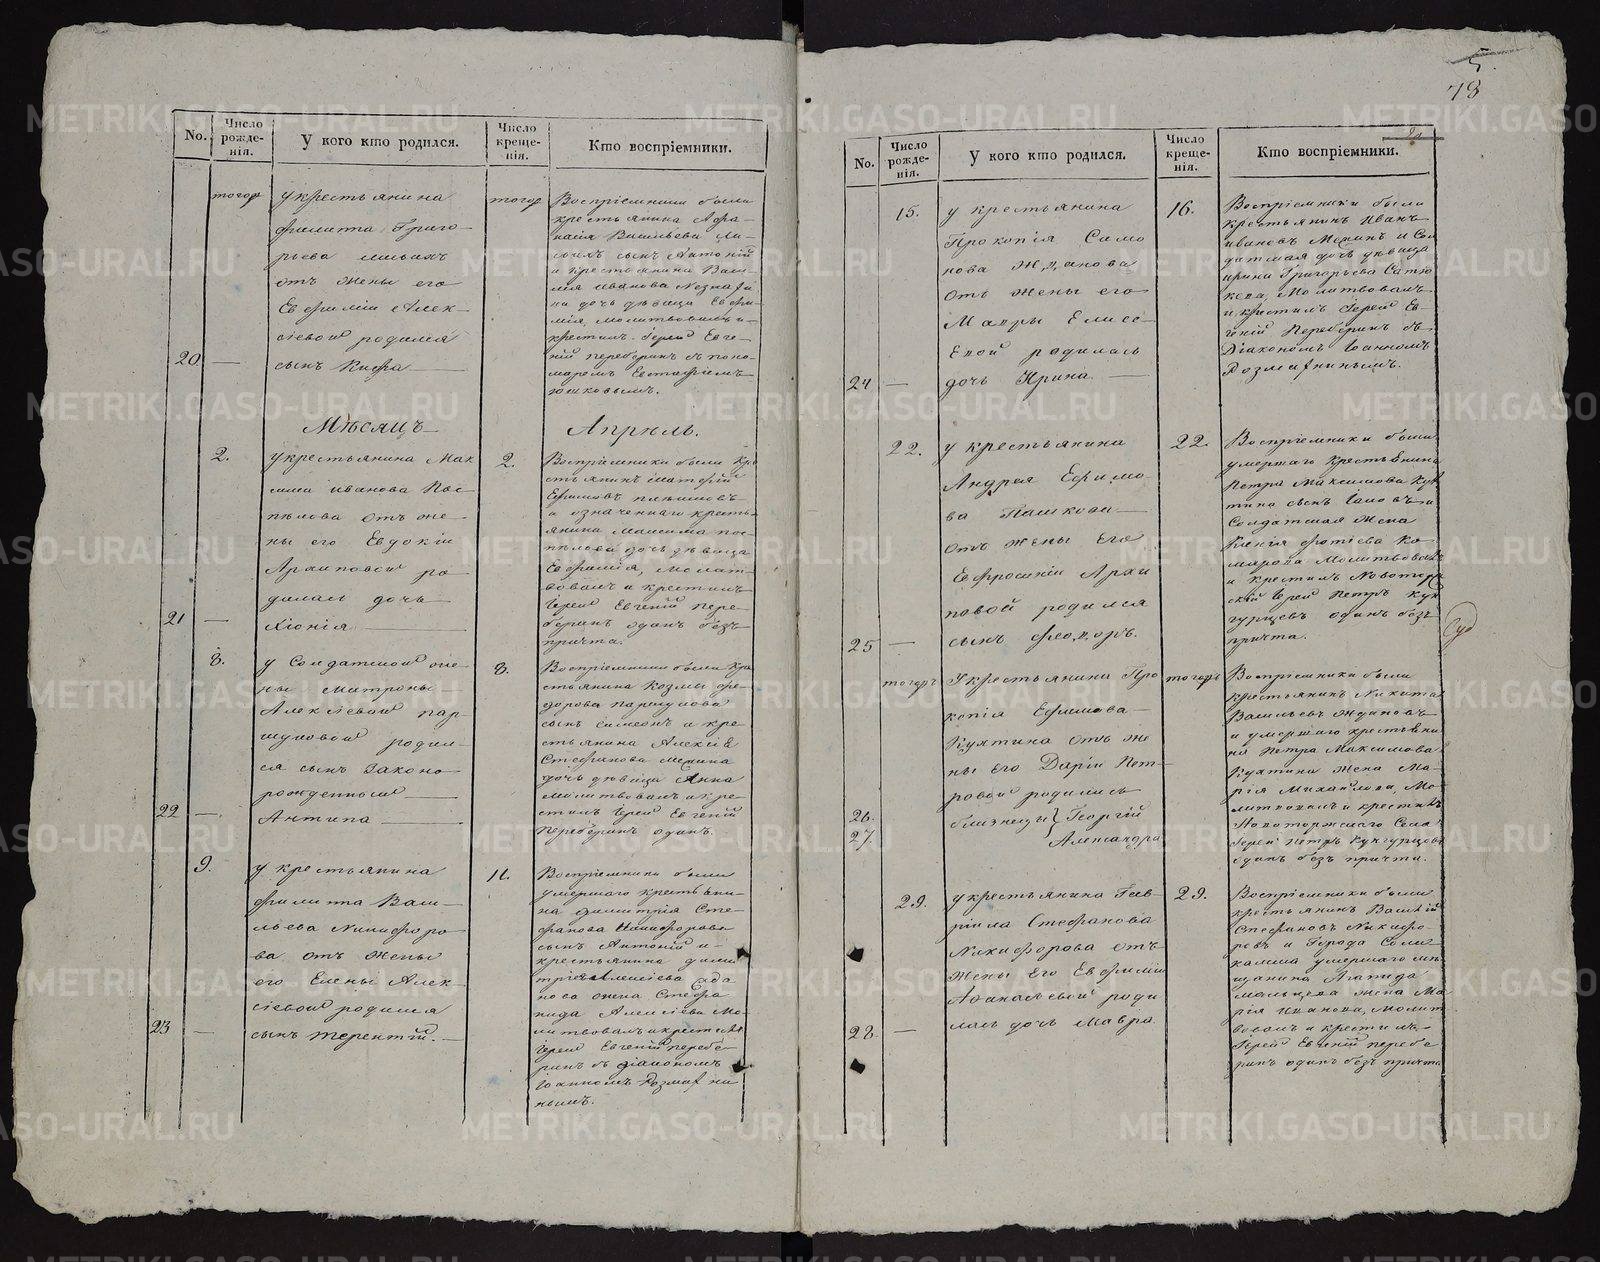 No.
Число рожде-нія.
У кого кто родился.
Число креще-нія.
Кто воспріемники.
тогож
у крестьянина
Филиппа Григо-
рьева
отъ жены его
Евфиміи Алек-
сіевой родился
20 — сынъ Кифа —
тогож
Воспріемники были
крестьянина Афа-
насія Васильева
сынъ Антоній
и крестьянина Васи-
лія Иванова
дочь дѣвица Евфи-
мія, молитвовалъ и
крестилъ Іерей Евге-
ній Переберинъ съ поно-
маремъ Евстафіемъ
Юшковымъ.
Мѣсяцъ Апрѣль.
2.
у крестьянина Мак
сима Иванова Пос-
пѣлова отъ же-
ны его Евдокіи
Архиповой ро-
дилась дочь
21 — Хіонія —
2.
Воспріемники были кре
стьянинъ Матфей
Ефимовъ
и означеннаго кресть-
янина Максима Пос-
пѣлова дочь дѣвица
Евфимія, молит-
вовалъ и крестилъ
Іерей Евгеній Пере-
беринъ одинъ безъ
причта.
8.
у Солдатской же-
ны Матроны
Алексіевой Пар-
шуковой родил-
ся сынъ законо-
рожденной
22 — Антипа —
8.
Воспріемники были кре
стьянина Козмы Фе-
дорова Паршукова
сынъ Симеонъ и кре
стьянина Алексіѣ
Стефанова
дочь дѣвица Анна
молитвовалъ и кре-
стилъ Іерей Евгеній
Переберинъ одинъ.
9.
у крестьянина
Филиппа Васи-
льева Никифоро-
ва отъ жены
его Елены Алек-
сіевой родился
23 — сынъ Терентій. —
11.
Воспріемники были
умершаго крестьяни-
на Димитрія Сте-
фанова Никифорова
сынъ Антоній и
крестьянина Дими
трія Алексіева
жена Стефа
нида Алексіева мо-
литвовалъ и крестилъ
Іерей Евгеній Перебе-
ринъ съ діакономъ
Іоанномъ Розмахни
нымъ.
5.
78
No.
Число рожде-нія.
У кого кто родился.
Число креще-нія.
Кто воспріемники.
15.
у крестьянина
Прокопія Само
нова Жданова
отъ жены его
Мавры Елисе-
евой родилась
24 — дочь Ирина. —
16.
Воспріемники были
крестьянинъ Иванъ
Ивановъ и Сол
датская дочь дѣвица
Ирина Григорьева
молитвовалъ
и крестилъ Іерей Ев-
геній Переберинъ съ
Діакономъ Іоанномъ
Розмахнинымъ.
22.
у крестьянина
Андрея Ефимо-
ва
отъ жены его
Евфросиніи Архи
повой родился
25 — сынъ Ѳеодоръ.
22.
Воспріемники были
умершаго крестьянина
Петра Максимова Кук
тина сынъ и
Солдатская жена
Ксенія Фотіева Ко-
марова молитвовалъ
и крестилъ Новоторж
скій Іерей Петръ Кун
гурцевъ одинъ безъ
причта.
тогожъ
У крестьянина Про
копія Ефимова
Куктина отъ же
ны его Даріи Пет-
ровой родились
26. близнецы Георгій
27. Александра
тогожъ
Воспріемники были
крестьянинъ Никита
Васильевъ Ждановъ
и умершаго крестьяни
на Петра Максимова
Куктина жена Ма-
рія Михайлова, мо-
литвовалъ и крестилъ
Новоторжскаго Села
Іерей Петръ Кунгурцевъ
одинъ безъ причта.
29.
у крестьянина Гав-
ріила Стефанова
Никифорова отъ
жены его Евфиміи
Афанасьевой роди
28. — лась дочь Мавра.
29.
Воспріемники были
крестьянинъ Василій
Стефановъ Никифо-
ровъ и Города Соли
камска умершаго мѣ
щанина
жена Ма
рія Иванова, молит
вовалъ и крестилъ
Іерей Евгеній Перебе
ринъ одинъ безъ причта
METRIKI.GASO-URAL.RU